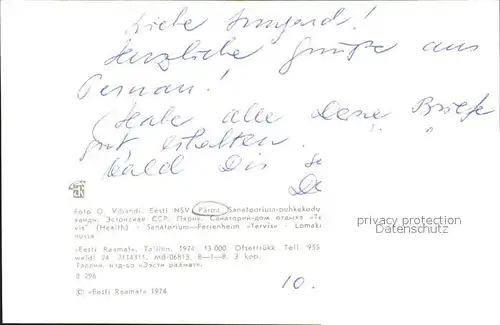 Liebe Irmgard!
Herzliche Grüße aus
Pernau!
Habe alle Deine Briefe
gut erhalten.
Bald Dir
De
Foto O. Vihandi. Eesti NSV. Pärnu. Sanatoorium-puhkekodu
ханди. Эстонская ССР. Пярну. Санаторий-дом отдыха «Te
vis" (Health) · Sanatorium—Ferienheim «Tervis» · Lomak
nusse
privacy protection
AKpool.de
«Eesti Raamat», Tallinn, 1974. 13 000. Ofsettrükk. Tell. 955
wald. 24. 2114311. MB-06813. 8—1—8. 3 kop.
Таллин, изд-во «Ээсти раамат».
B 296
10.
© «Eesti Raamat» 1974